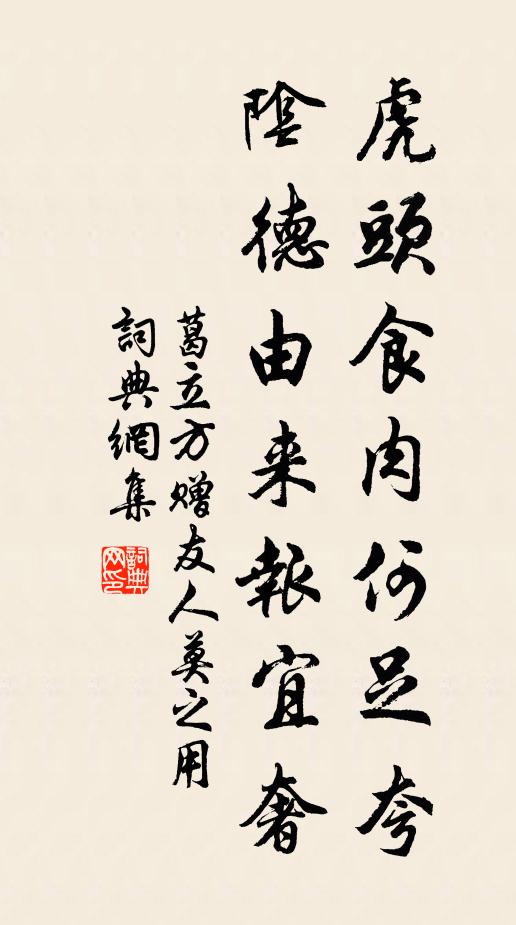 虎頭食肉何足夸
陰德由来報宜奢
葛立方赠友人莫之用
詞典網集
詞典网印